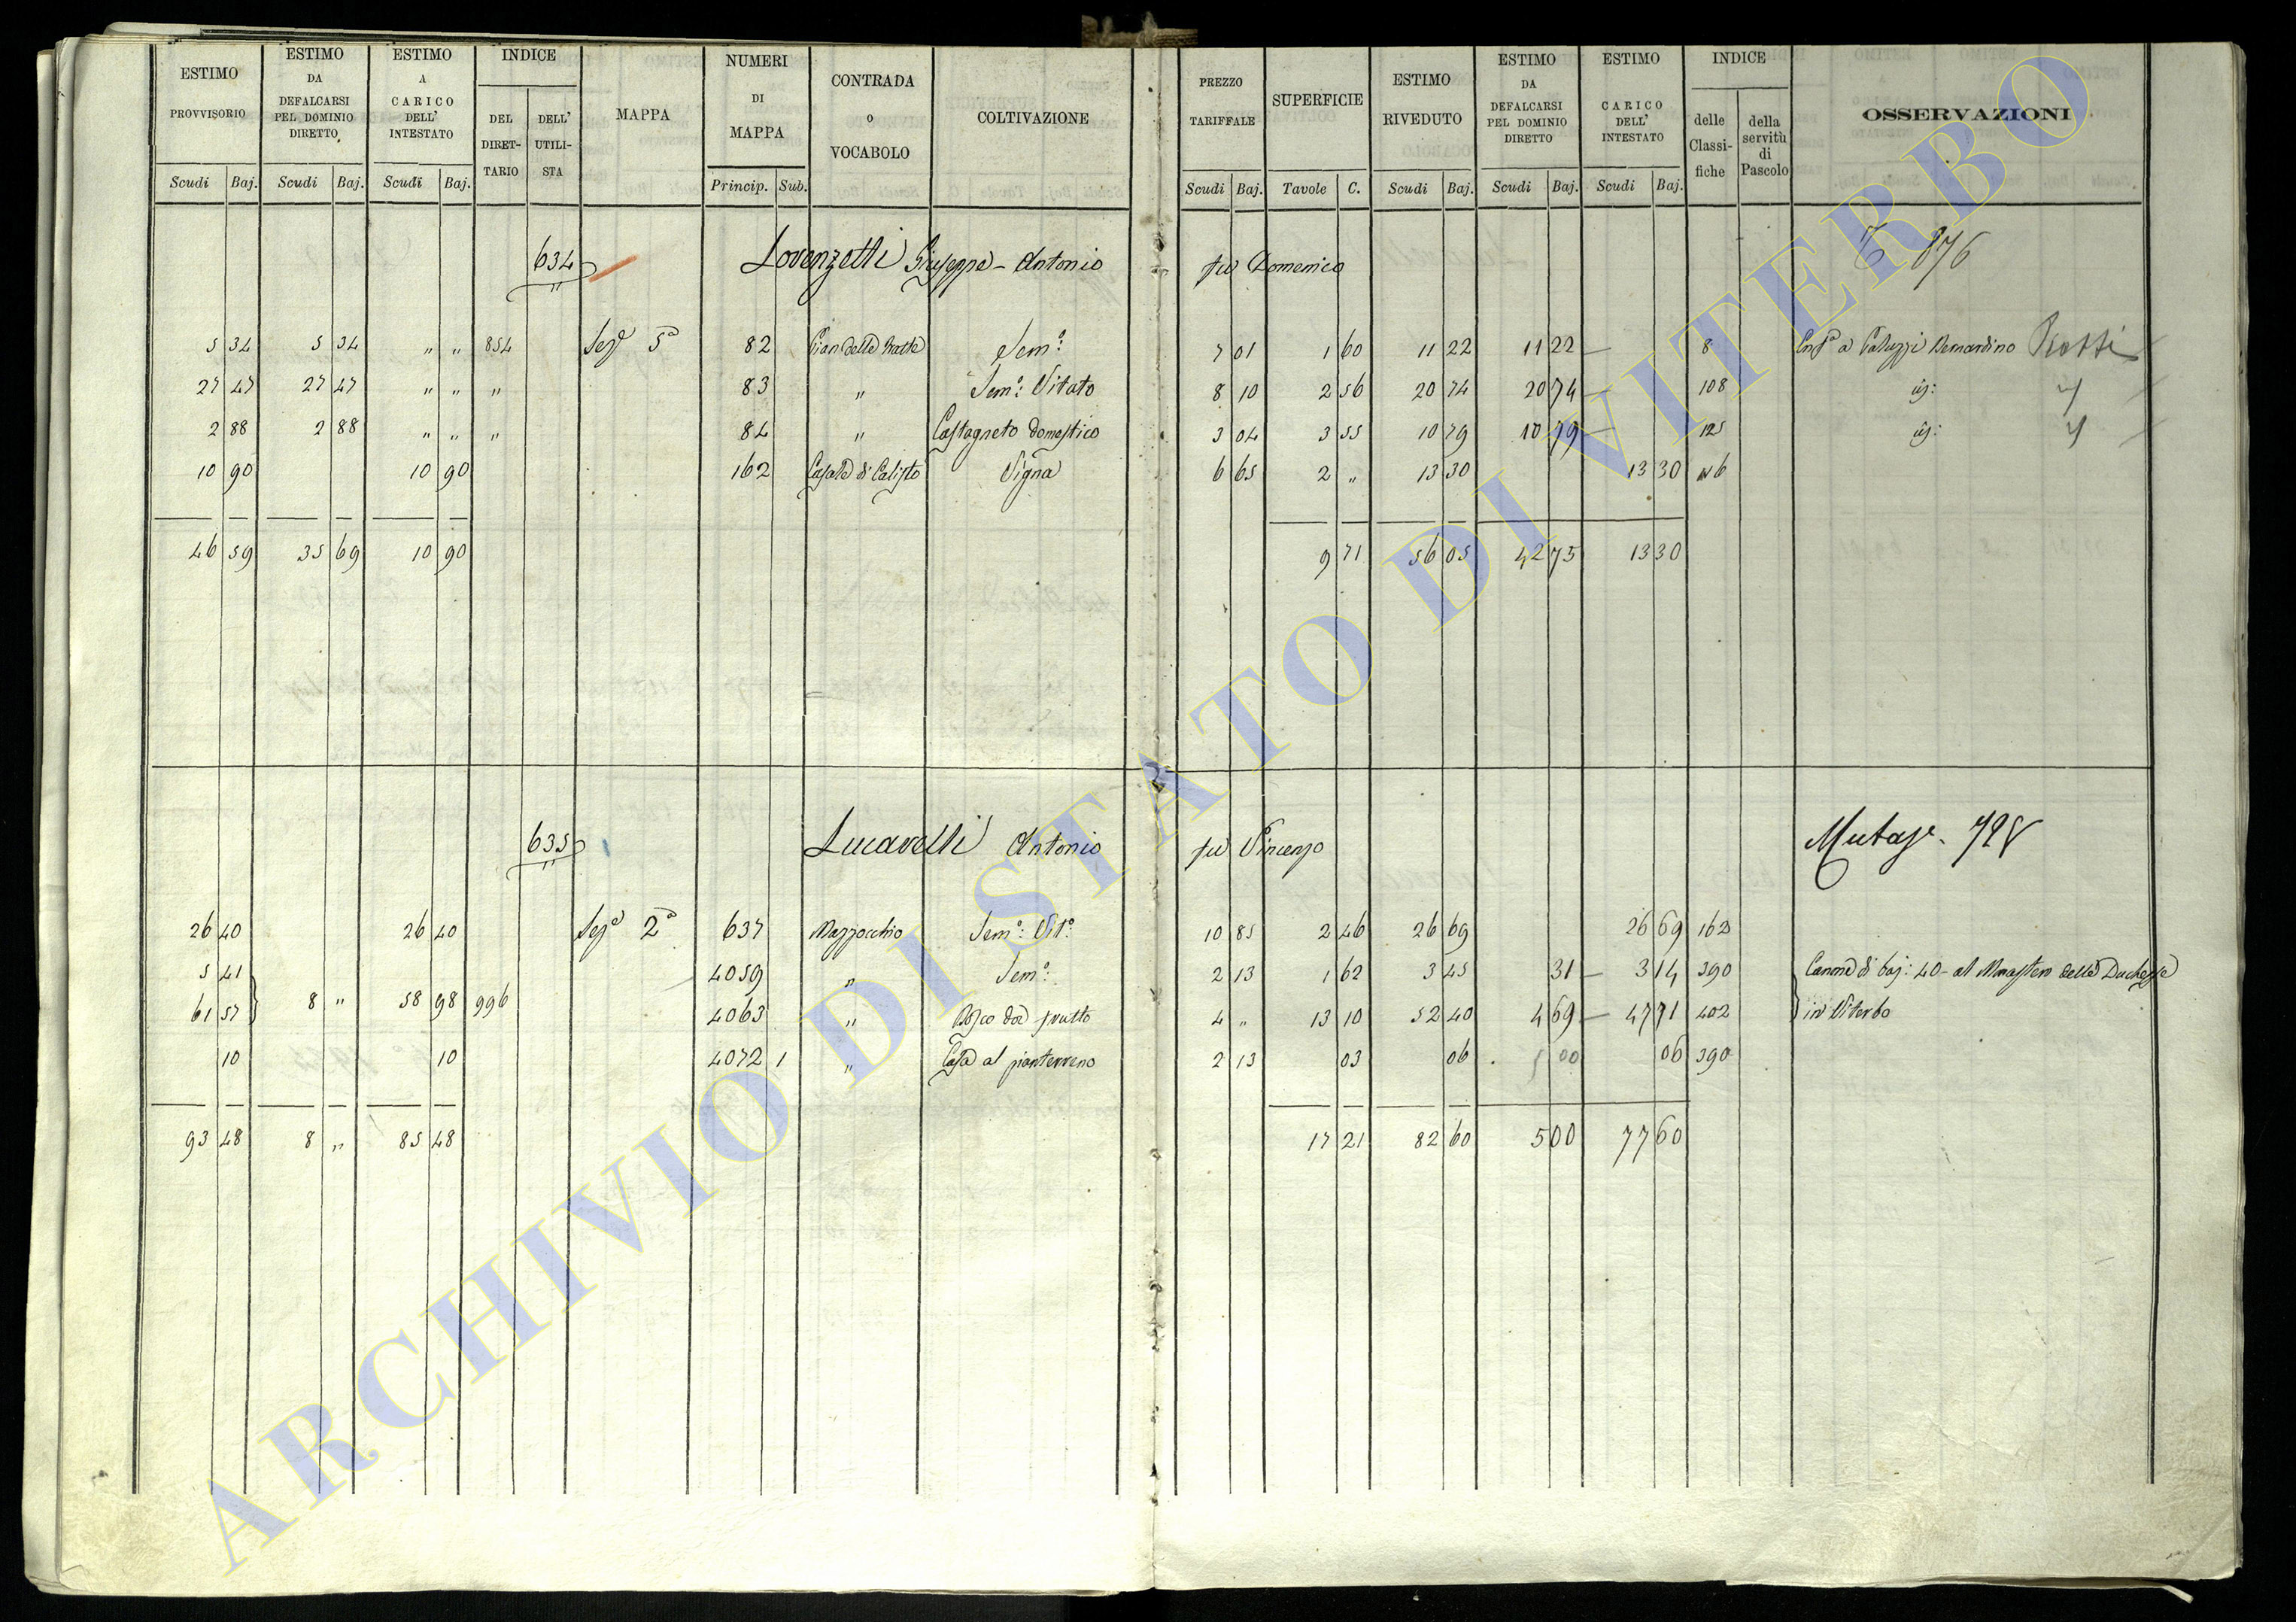 ESTIMO PROVVISORIO | ESTIMO DA DEFALCARSI PEL DOMINIO DIRETTO | ESTIMO A CARICO DELL' INTESTATO | INDICE DEL DIRET-TARIO | DELL' UTILI-STA | MAPPA | NUMERI DI MAPPA | CONTRADA O VOCABOLO | COLTIVAZIONE | PREZZO TARIFFALE | SUPERFICIE | ESTIMO RIVEDUTO | ESTIMO DA DEFALCARSI PEL DOMINIO DIRETTO | ESTIMO CARICO DELL' INTESTATO | INDICE delle Classi-fiche | della servitù di Pascolo | OSSERVAZIONI
Scudi Baj. Scudi Baj. Scudi Baj. Princip. Sub. Scudi Baj. Tavole C. Scudi Baj. Scudi Baj. Scudi Baj.
634 Lorenzetti Giuseppe-Antonio fu Domenico 876
5 34 5 34 " " 854 Sez.e 5a 82 Sem.o 7 01 1 60 11 22 11 22 — 8 a Paluzzi Bernardino
27 47 27 47 " " " 83 " Sem.o: Vitato 8 10 2 56 20 74 20 74 — 108
2 88 2 88 " " " 84 " Castagneto domestico 3 04 3 55 10 79 10 79 — 125
10 90 10 90 162 Casale di Calisto Vigna 6 65 2 " 13 30 13 30
46 59 35 69 10 90 9 71 56 05 42 75 13 30
635 Lucarelli Antonio fu Vincenzo Mutaz.e 728
26 40 26 40 Sez.e 2a 637 Mazzocchio Sem.o: Vit.o 10 85 2 46 26 69 26 69 162
5 41 4059 " Sem.o: 2 13 1 62 3 45 31 — 3 14 390 Canone di baj: 40 - al Monastero della Duchessa
61 57 8 " 58 98 996 4063 " Bosco da frutto 4 " 13 10 52 40 4 69 — 47 71 402 in Viterbo
10 10 4072 1 " Casa al pianterreno 2 13 03 06 00 06 390
93 48 8 " 85 48 17 21 82 60 5 00 77 60
ARCHIVIO DI STATO DI VITERBO